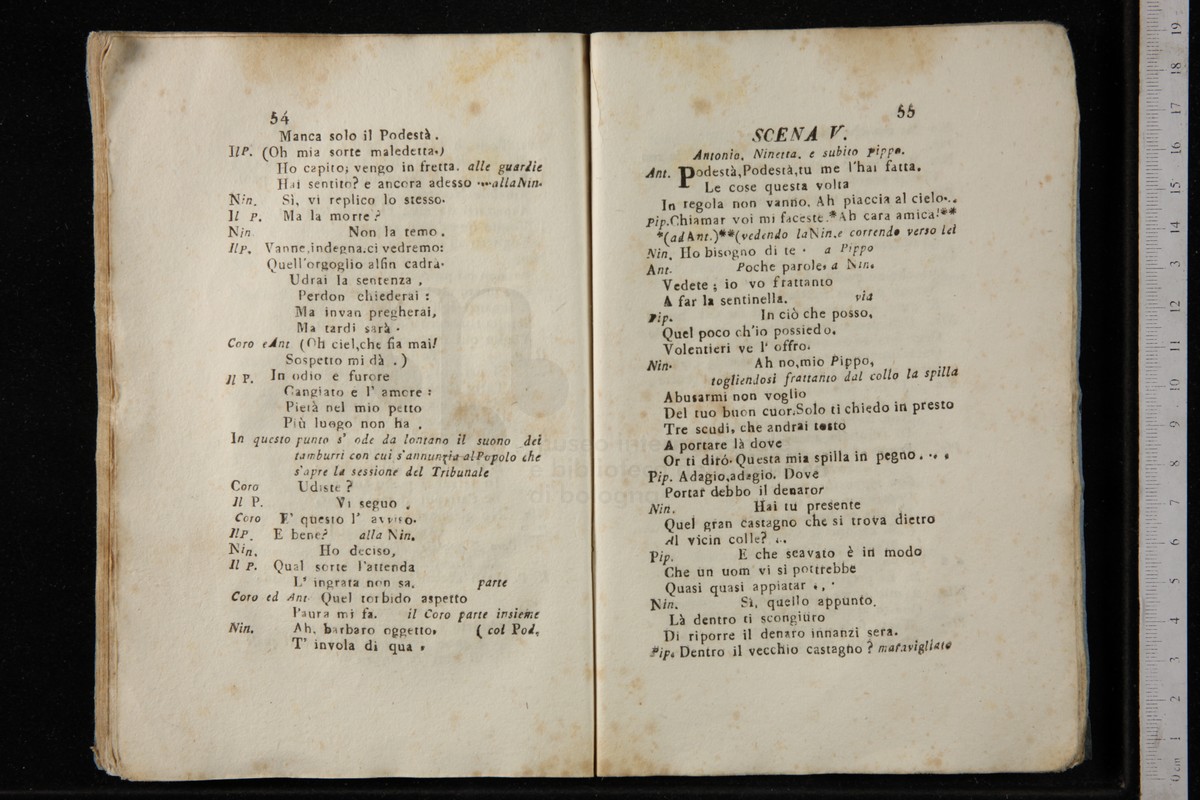 54
Manca solo il Podestà.
Il P. (Oh mia sorte maledetta.)
Ho capito; vengo in fretta. alle guardie
Hai sentito? e ancora adesso ... alla Nin.
Nin. Sì, vi replico lo stesso.
Il P. Ma la morte?
Nin Non la temo.
Il P. Vanne, indegna. ci vedremo:
Quell'orgoglio alfin cadrà.
Udrai la sentenza,
Perdon chiederai:
Ma invan pregherai,
Ma tardi sarà.
Coro e Ant (Oh ciel, che fia mai!
Sospetto mi dà.)
Il P. In odio e furore
Cangiato e l' amore:
Pietà nel mio petto
Più luogo non ha.
In questo punto s' ode da lontano il suono dei
tamburri con cui s'annunzia al Popolo che
s'apre la sessione del Tribunale
Coro Udiste?
Il P. Vi seguo.
Coro E' questo l' avviso.
Il P. E bene? alla Nin.
Nin. Ho deciso,
Il P. Qual sorte l'attenda
L' ingrata non sa. parte
Coro ed Ant Quel torbido aspetto
Paura mi fa. il Coro parte insieme
Nin. Ah, barbaro oggetto, ( col Pod,
T' invola di qua,
55
SCENA V.
Antonio, Ninetta. e subito Pippo.
Ant. Podestà, Podestà, tu me l'hai fatta.
Le cose questa volta
In regola non vanno. Ah piaccia al cielo...
Pip. Chiamar voi mi faceste.*Ah cara amica!**
*(ad Ant.)**(vedendo la Nin.e correndo verso lei
Nin. Ho bisogno di te. a Pippo
Ant. Poche parole, a Nin.
Vedete; io vo frattanto
A far la sentinella. via
Pip. In ciò che posso,
Quel poco ch'io possiedo.
Volentieri ve l' offro.
Nin. Ah no, mio Pippo,
togliendosi frattanto dal collo la spilla
Abusarmi non voglio
Del tuo buon cuor. Solo ti chiedo in presto
Tre scudi, che andrai tosto
A portare là dove
Or ti dirò. Questa mia spilla in pegno...
Pip. Adagio, adagio. Dove
Portar debbo il denaror
Nin. Hai tu presente
Quel gran castagno che si trova dietro
Al vicin colle?..
Pip. E che seavato è in modo
Che un uom vi si pottrebbe
Quasi quasi appiatar..
Nin. Sì, quello appunto.
Là dentro ti scongiuro
Di riporre il denaro innanzi sera.
Pip. Dentro il vecchio castagno? maravigliato